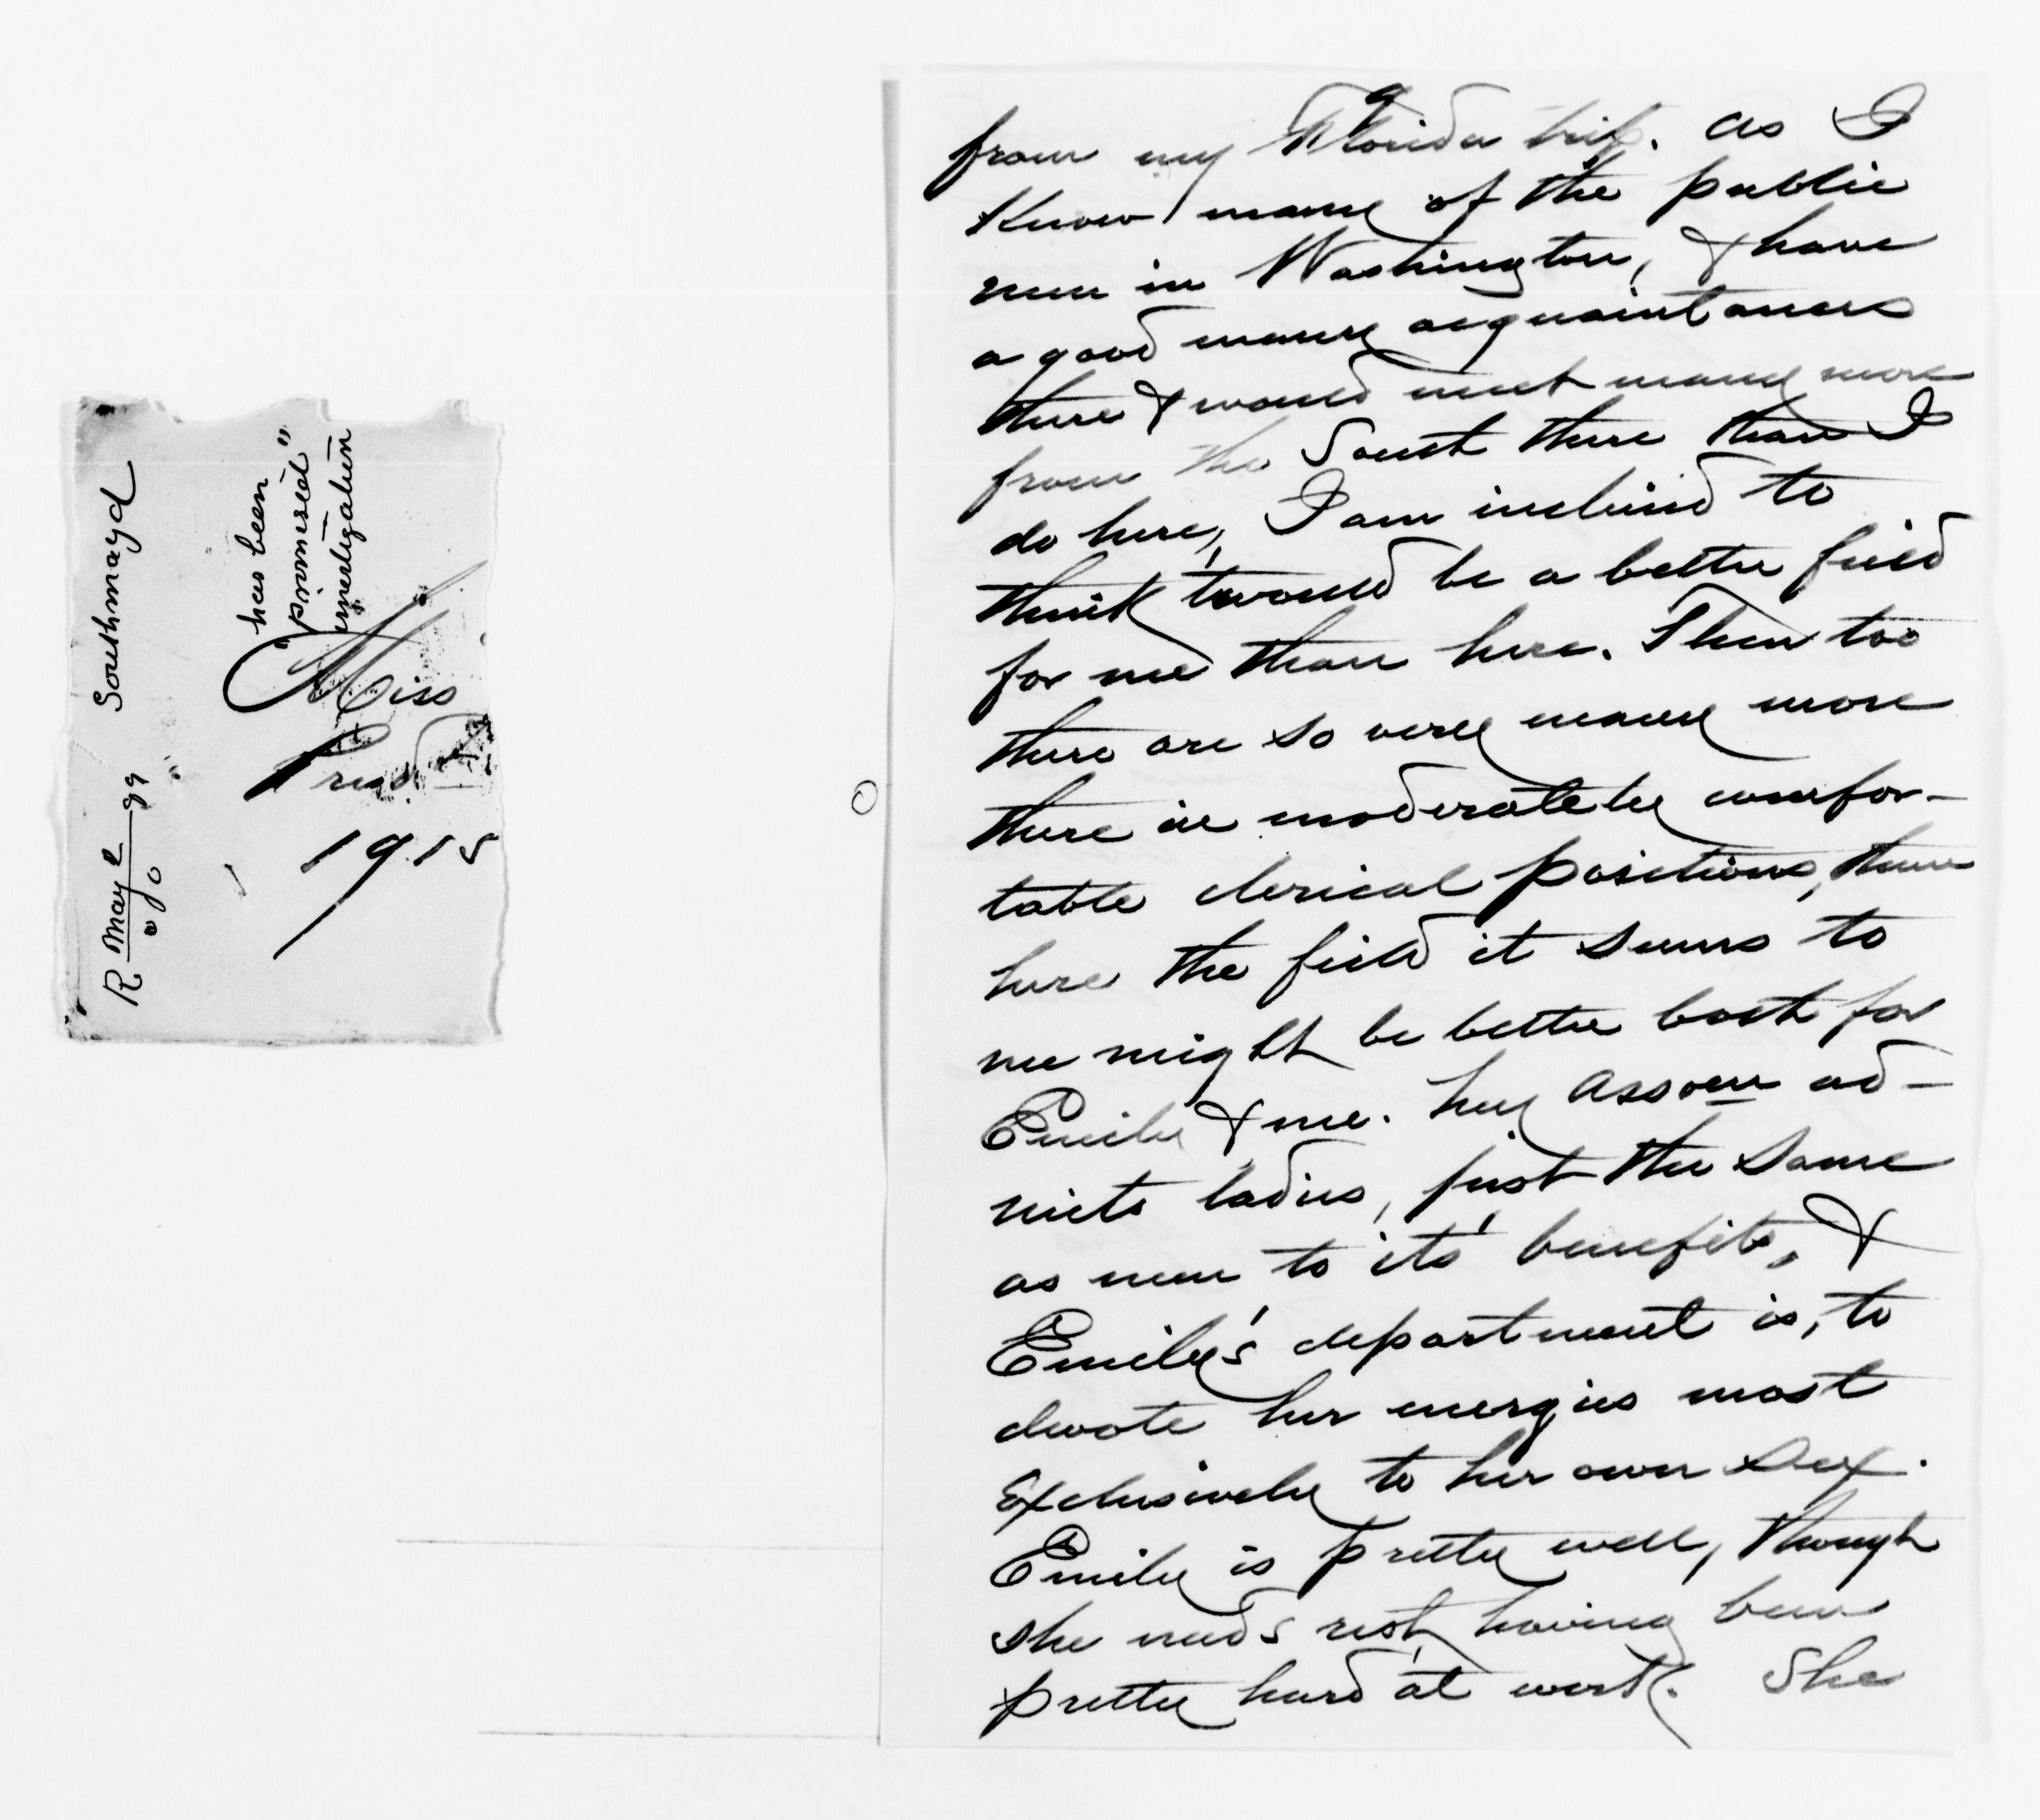 Southmayd
R May 2 99
has been
"promised"
investigation
Miss
1915
9
from my Florida trip. As I
Know many of the public
men in Washington, & have
a good many acquaintances
there & would meet many more
from the South there than I
do here, I am inclined to
think 'twould be a better field
for me than here. Then too
there are so very many more
there in moderately comfor-
table clerical positions, than
here the field it seems to
me might be better both for
Emily & me. my Assocn ad-
mits ladies, just the same
as men to its' benefits, &
Emily's department is, to
devote her energies most
Exclusively to her own sex.
Emily is pretty well, though
she needs rest, having been
pretty hard at work. She